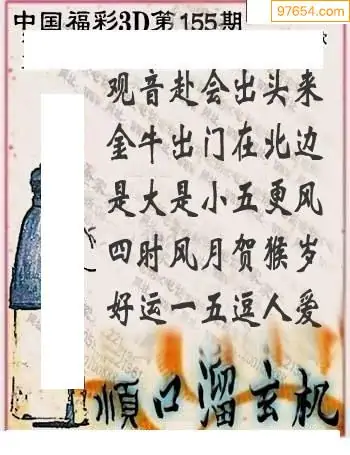 97654.com
中国福彩3D第155期
观音赴会出头来
金牛出门在北边
是大是小五更风
四时风月贺猴岁
好运一五逗人爱
顺口溜玄机